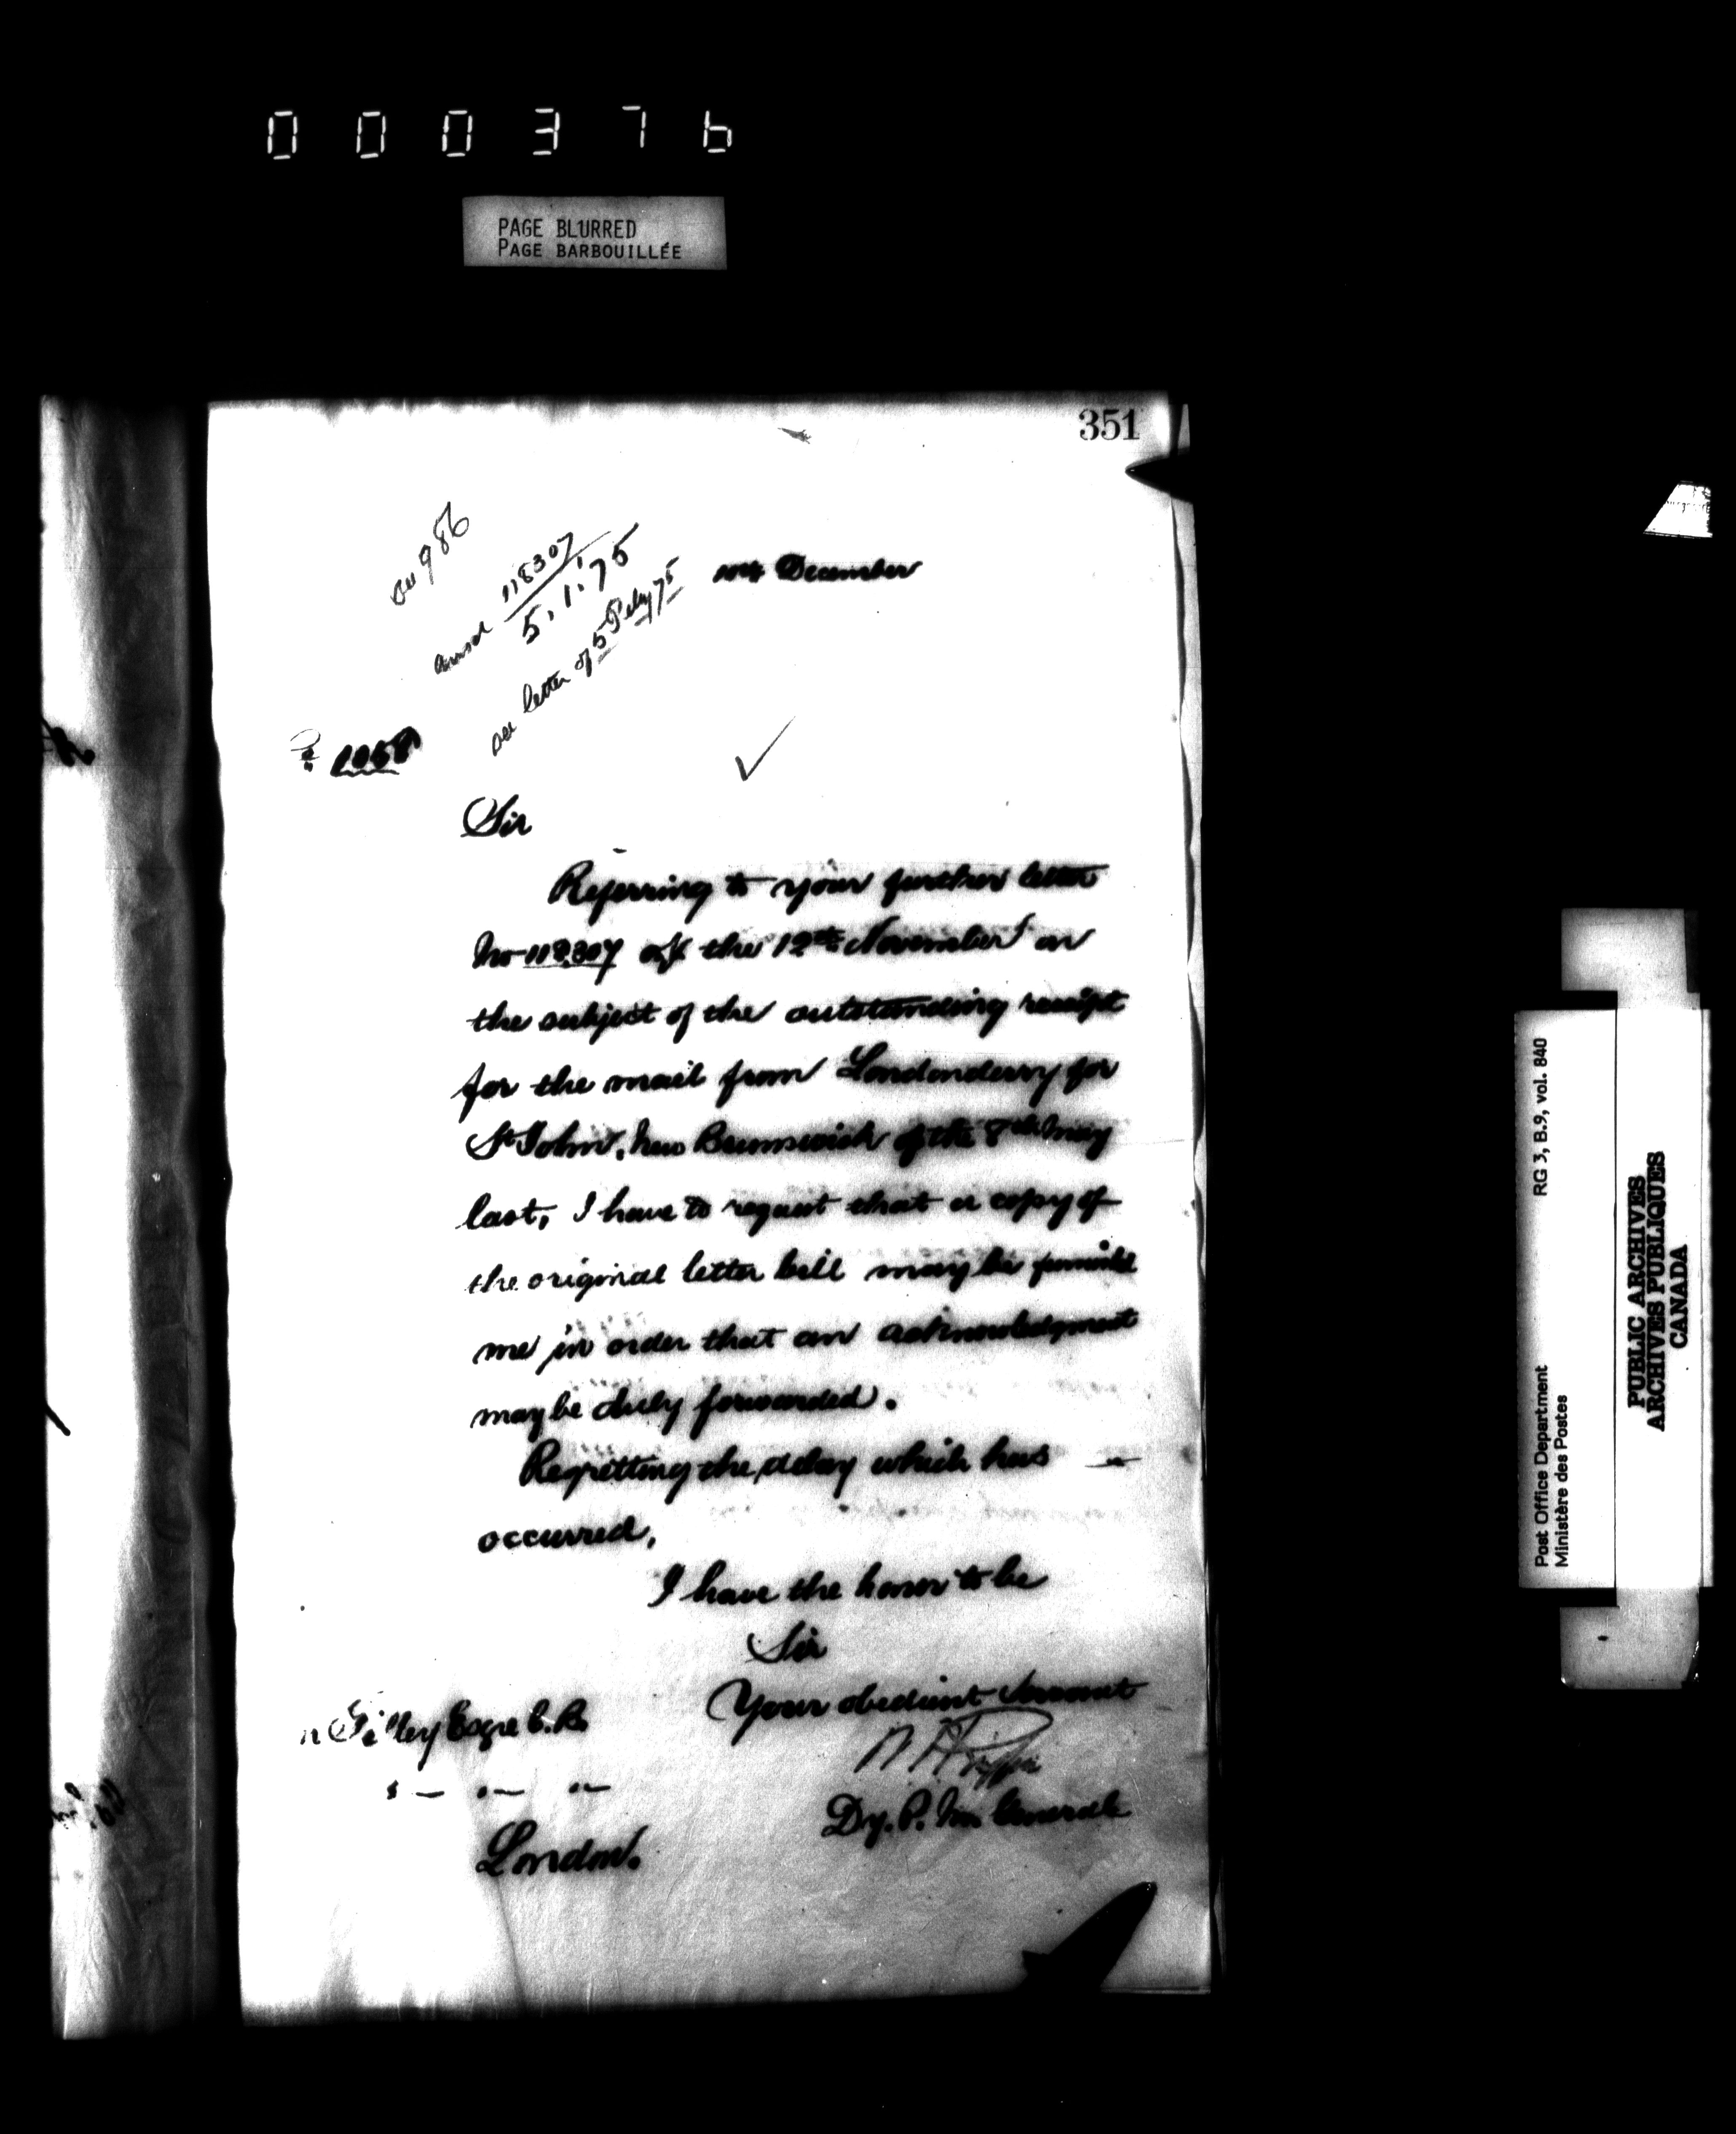 000376
PAGE BLURRED
PAGE BARBOUILLÉE
351
986
118307
5.1.75
see letter of 5 Feby 75
December
Sir
Referring to your further letter
No 118.307 of the 12th November on
the subject of the outstanding receipt
for the mail from Londonderry for
St John, New Brunswick of the 8th May
last, I have to request that a copy of
the original letter bill may be furnished
me in order that an acknowledgment
may be duly forwarded.
Regretting the delay which has
occurred,
I have the honor to be
Sir
Your obedient Servant
Dy. P. M. General
Tilley Esqre C.B.
London.
Post Office Department
Ministère des Postes
RG 3, B.9, vol. 840
PUBLIC ARCHIVES
ARCHIVES PUBLIQUES
CANADA